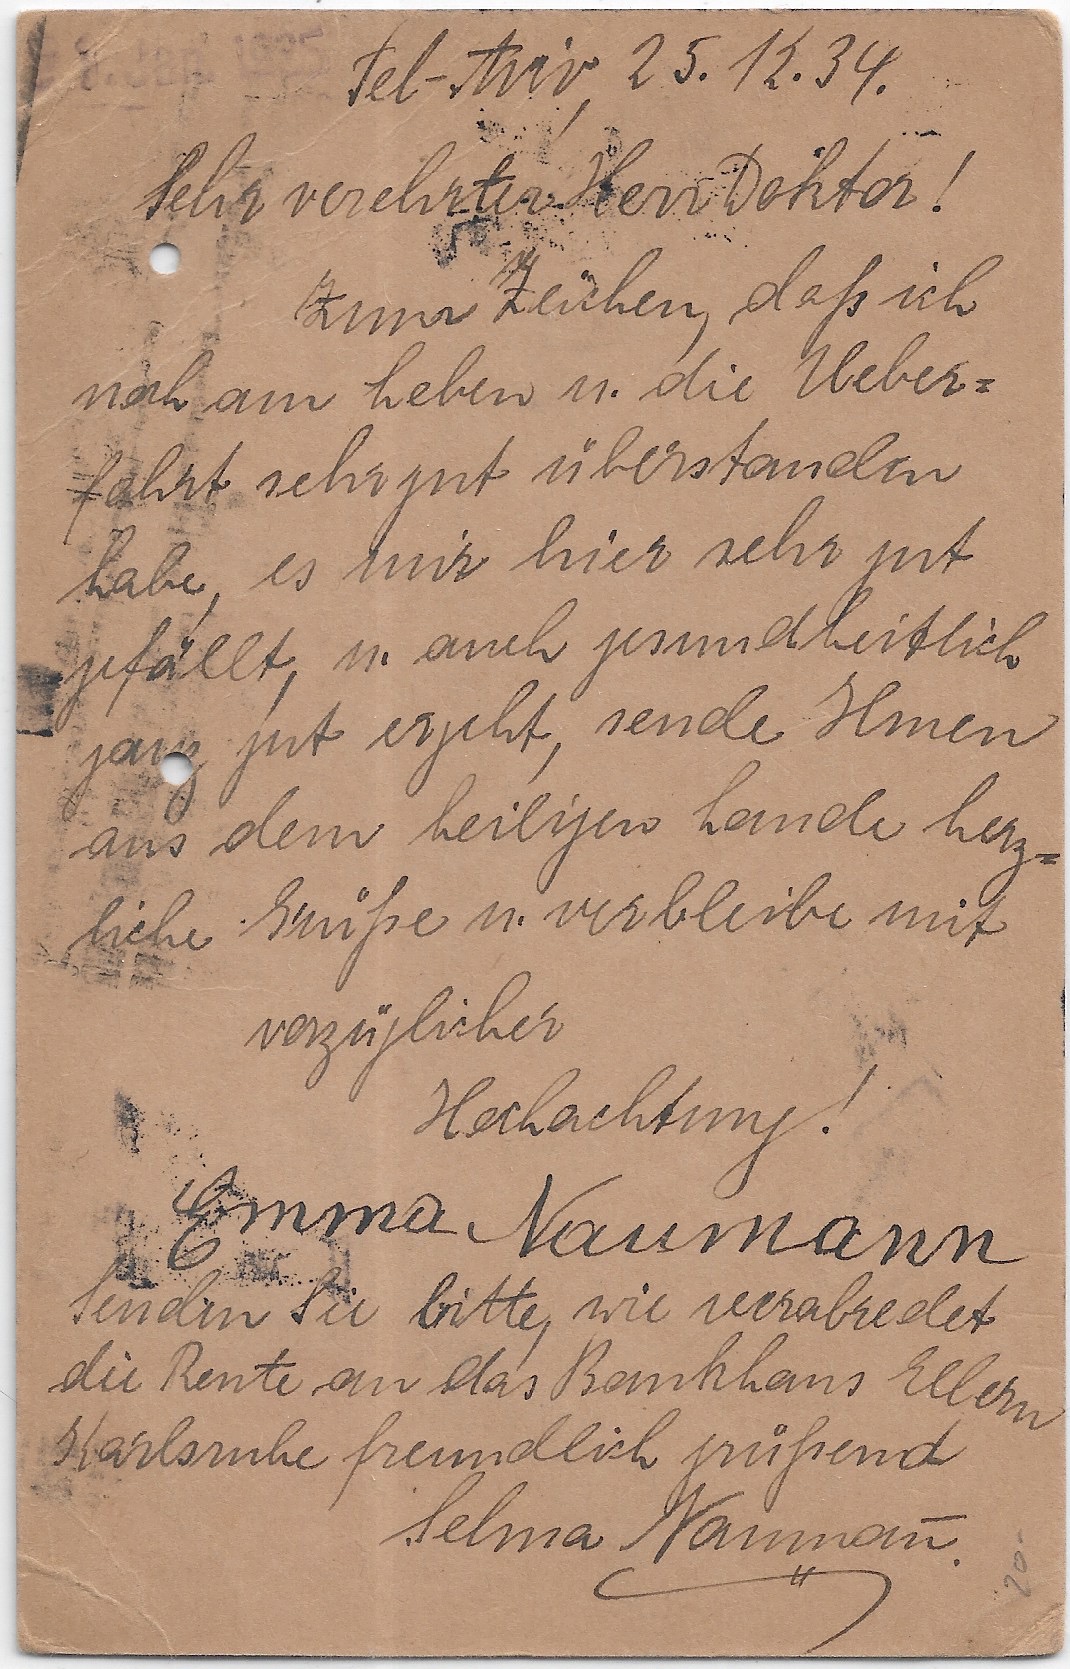 Tel-Aviv, 25.12.34.
Sehr verehrter Herr Doktor!
Zum Zeichen, daß ich
noch am Leben u. die Ueber=
fahrt sehr gut überstanden
habe, es mir hier sehr gut
gefällt, u. auch gesundheitlich
ganz gut ergeht, sende Ihnen
aus dem heiligen Lande herz=
liche Grüße u. verbleibe mit
vorzüglicher
Hochachtung!
Emma Naumann
Senden Sie bitte, wie verabredet
die Rente an das Bankhaus Ellern
Karlsruhe freundlich grüßend
Selma Naumañ.
20.-